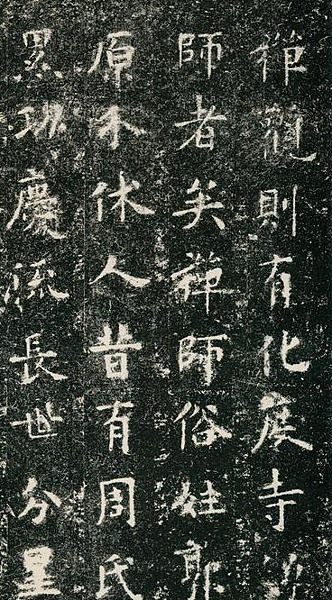 禪觀則有化度寺
師者矣禪師俗姓郭
原介休人昔有周氏
累功慶流長世分星